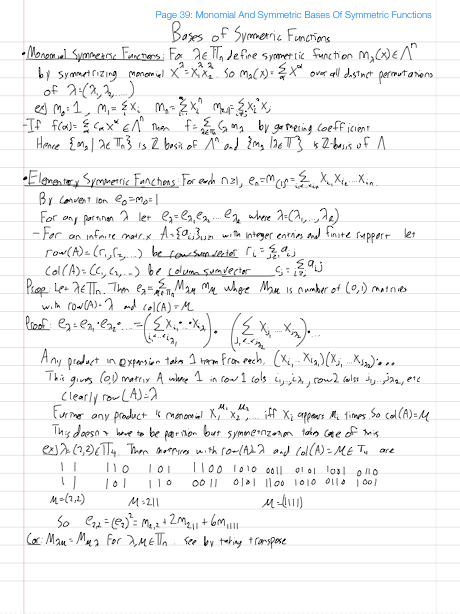 Page 39: Monomial And Symmetric Bases Of Symmetric Functions
Bases of Symmetric Functions
• Monomial Symmetric Functions: For λ∈Πn define symmetric function m_λ(x)∈Λ^n
by symmetrizing monomial X^λ = X₁^λ₁ X₂^λ₂... So m_λ(x) = Σ_α X^α over all distinct permutations
of λ=(λ₁,λ₂,...)
ex) m₀=1, m₁=Σ_i X_i m_n=Σ_i X_i^n
- If f(x)=Σ_α c_α X^α ∈Λ^n then f=Σ_{λ∈Πn} c_λ m_λ by gathering coefficient
Hence {m_λ | λ∈Πn} is Z basis of Λ^n and {m_λ | λ∈Π} is Z-basis of Λ
• Elementary Symmetric Functions: For each n≥1, e_n = m_(1^n) = Σ_{i₁<...<i_n} X_i₁ X_i₂ ... X_in
By convention e₀=m₀=1
For any partition λ let e_λ=e_λ₁ e_λ₂ ... e_λ_l where λ=(λ₁,...,λ_l)
- For an infinite matrix A=(a_ij)_{i,j≥1} with integer entries and finite support let
row(A)=(r₁,r₂,...) be row sum vector r_i = Σ_j a_ij
col(A)=(c₁,c₂,...) be column sum vector c_j = Σ_i a_ij
Prop: Let λ∈Πn. Then e_λ=Σ_{μ∈Πn} M_λμ m_μ where M_λμ is number of (0,1) matrices
with row(A)=λ and col(A)=μ
Proof: e_λ=e_λ₁·e_λ₂·...=(Σ_{i₁<...<i_λ₁} X_i₁...X_iλ₁)·(Σ_{j₁<...<j_λ₂} X_j₁...X_jλ₂)·...
Any product in expansion takes 1 term from each, (X_i₁...X_iλ₁)(X_j₁...X_jλ₂)...
This gives (0,1) matrix A where 1 in row 1 cols i₁,...,i_λ₁, row 2 cols j₁,...,j_λ₂, etc
Clearly row(A)=λ
Further any product is monomial X₁^μ₁ X₂^μ₂... iff X_i appears μ_i times. So col(A)=μ
This doesn't have to be partition but symmetrization takes care of this
ex) λ=(2,2)∈Π₄. Then matrices with row(A)=λ and col(A)=μ∈Π₄ are
11 110 101 1100 1010 0011 0101 1001 0110
11 101 110 0011 0101 1100 1010 0110 1001
μ=(2,2) μ=211 μ=(1111)
So e_2,2=(e₂)²=m_2,2+2m_211+6m_1111
Cor: M_λμ=M_μλ for λ,μ∈Πn. See by taking transpose